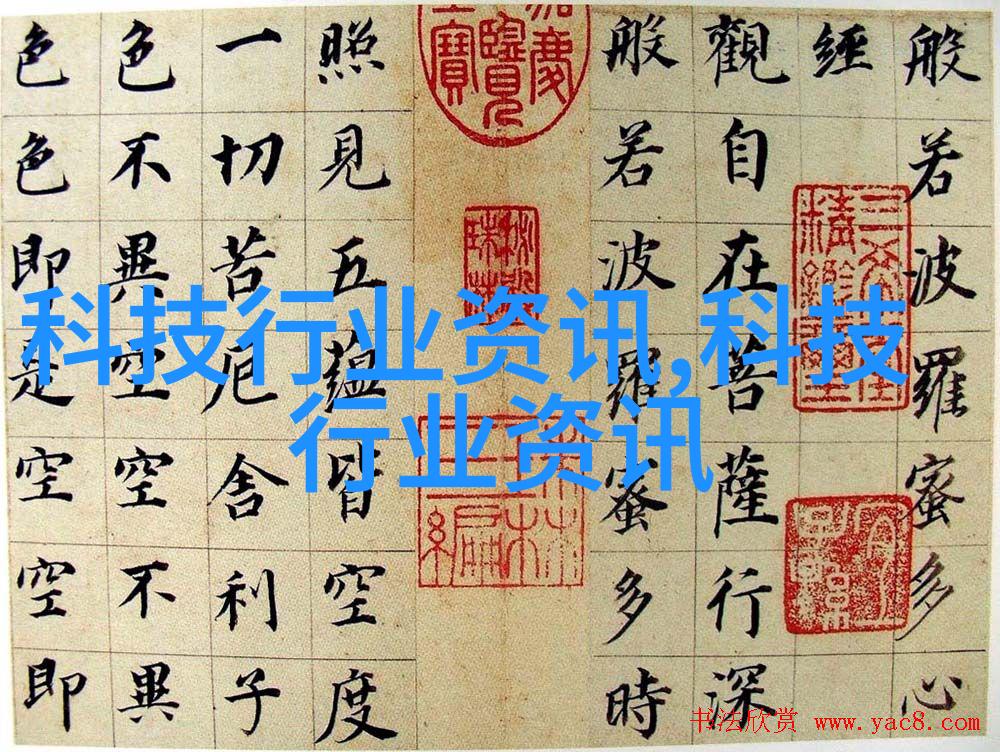 般若波羅蜜多心
經
觀自在菩薩行深
般若波羅蜜多時
照見五蘊皆空度
一切苦厄舍利子
色不異空空不異
色色即是空空即
科技行业资讯,科技
行业资讯
书法欣赏 www.yac8.com